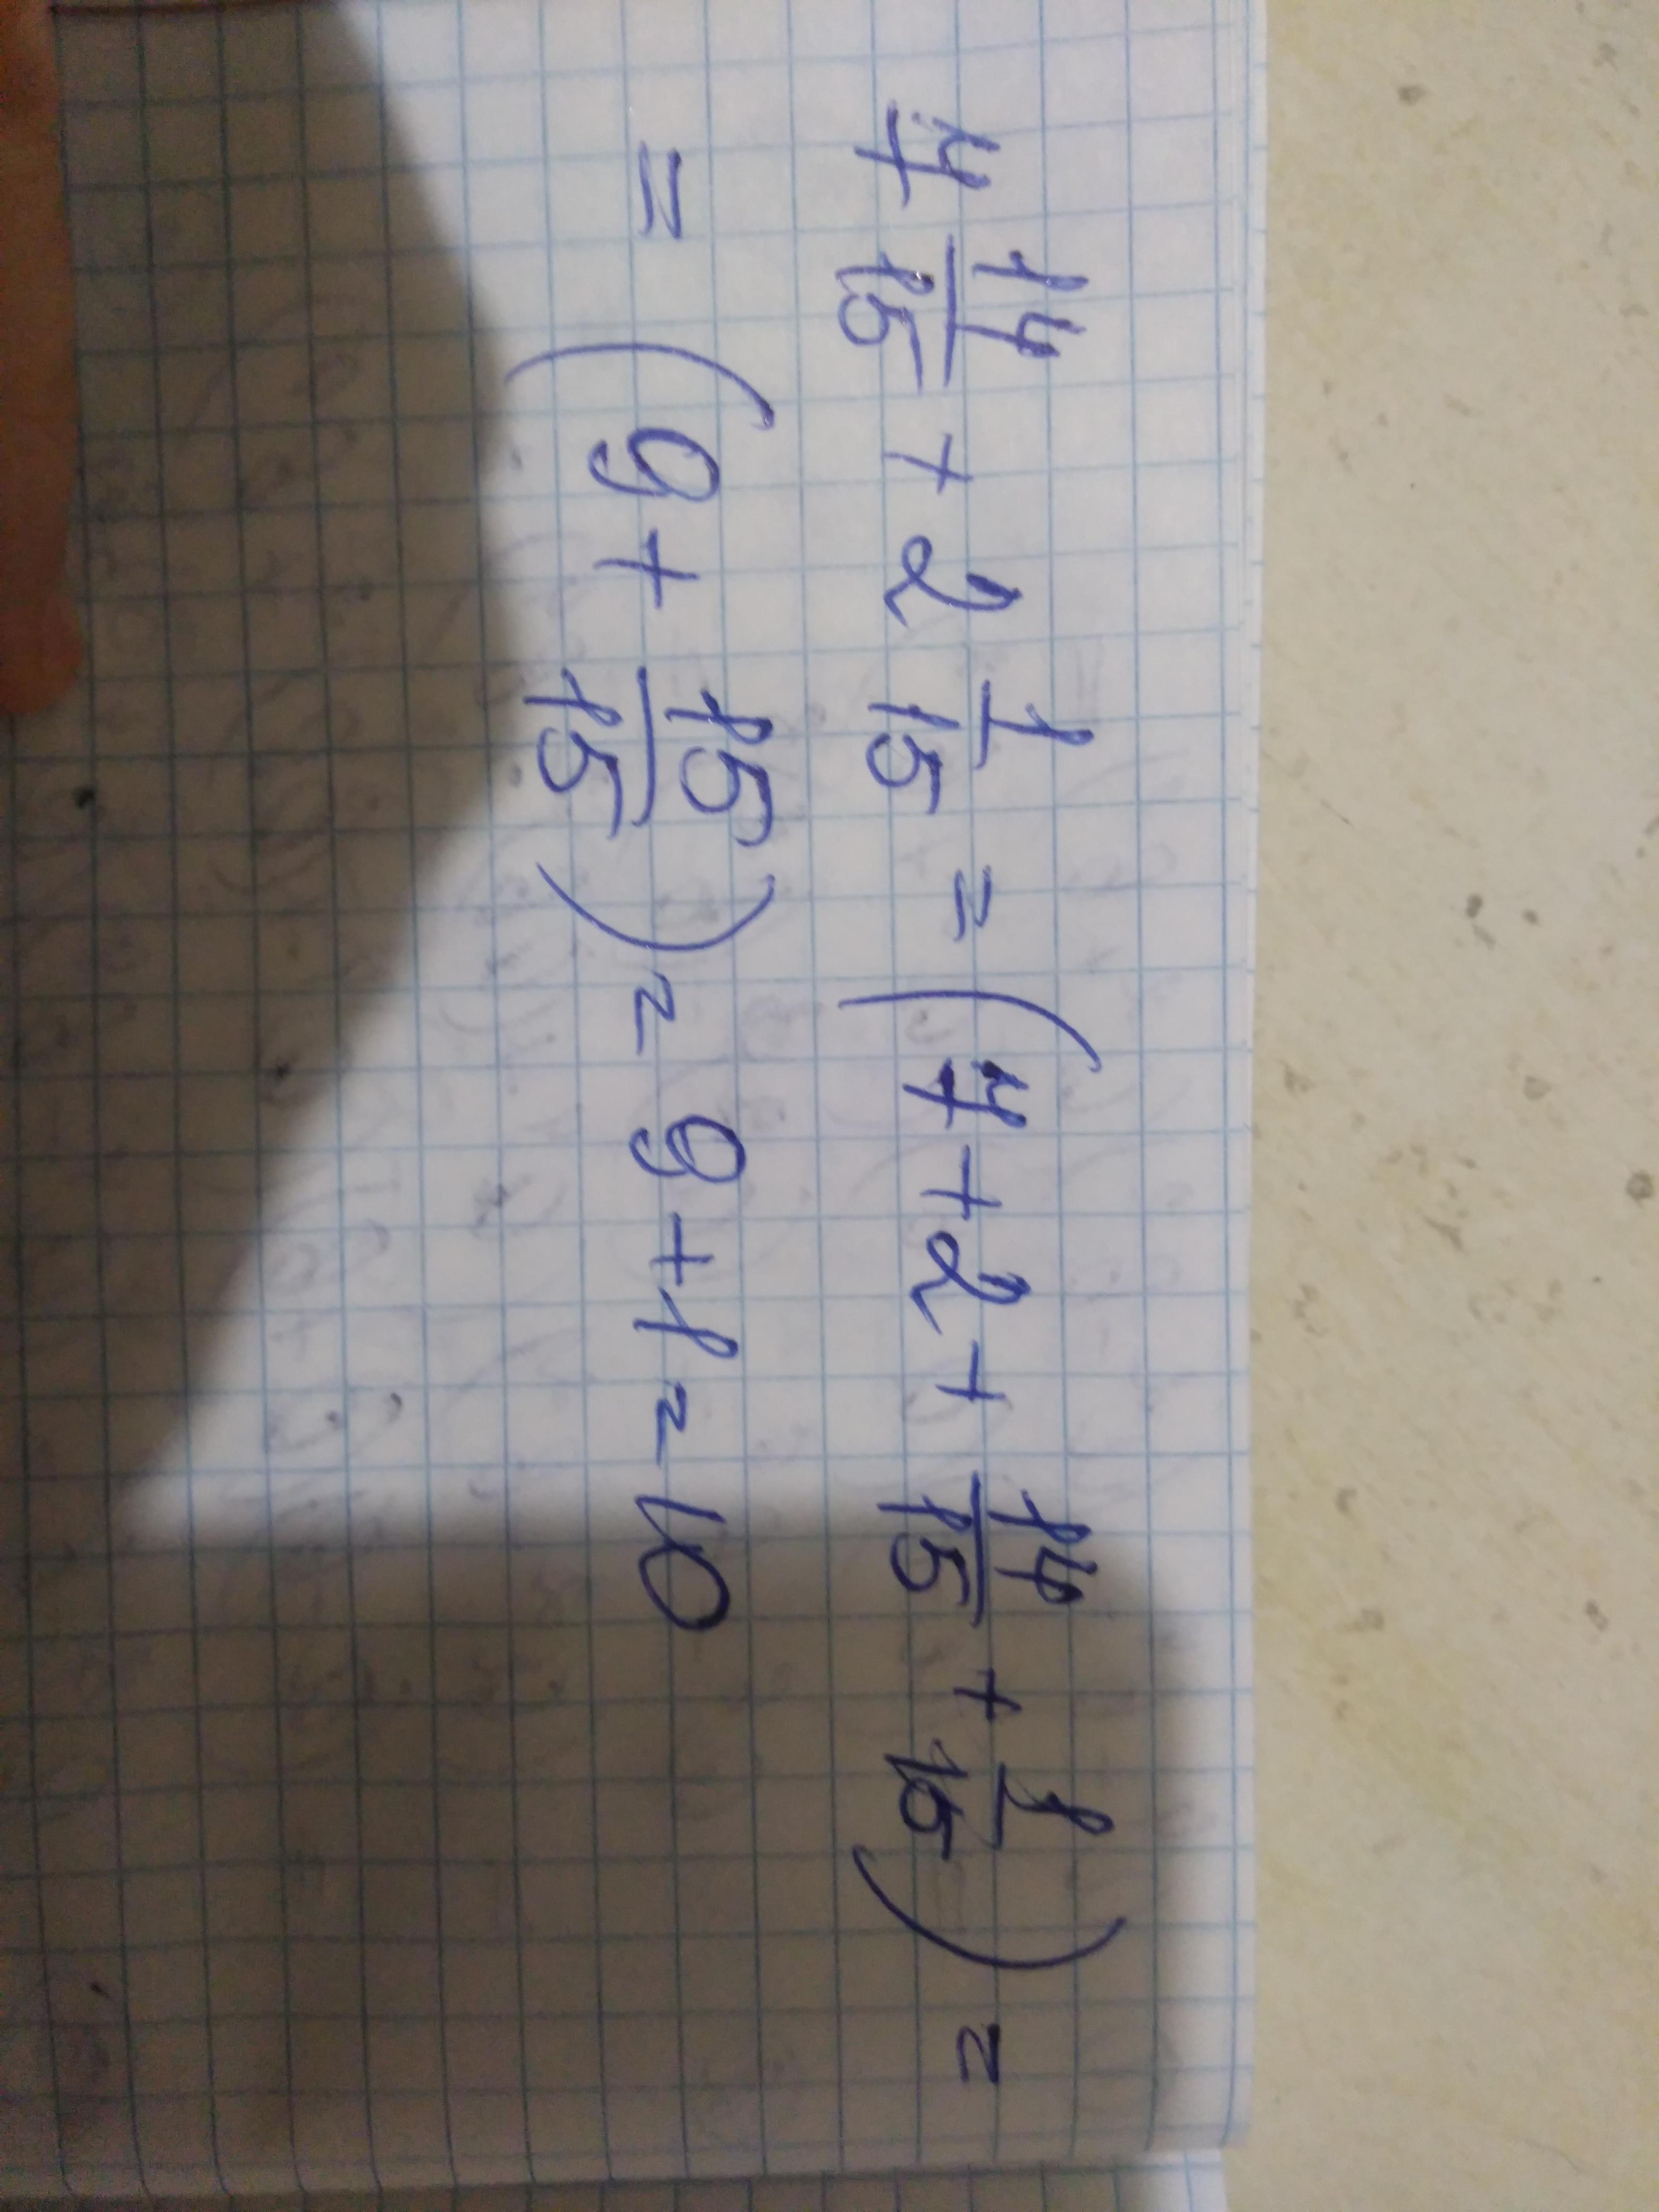 7 14/15 + 2 1/15 = (7 + 2 + 14/15 + 1/15) =
= (9 + 15/15) = 9 + 1 = 10